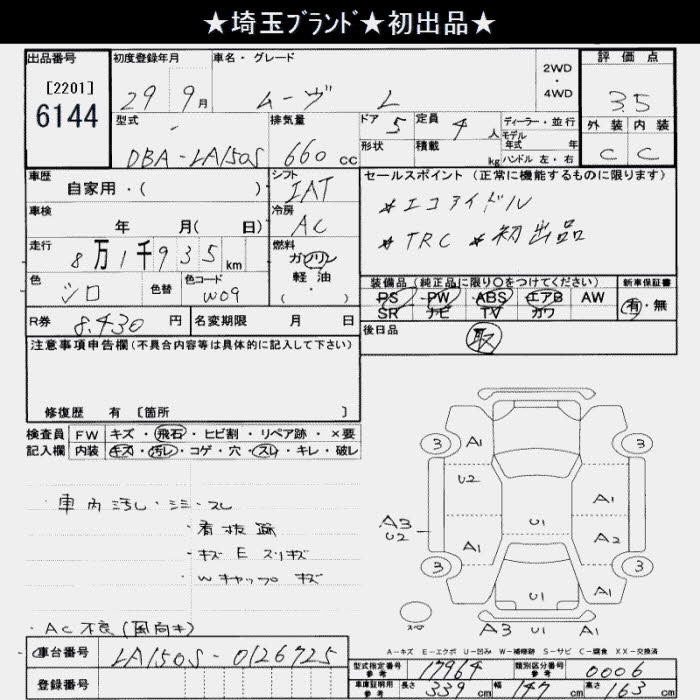 ★埼玉ﾌﾞﾗﾝﾄﾞ★初出品★
出品番号
[2201]
6144
初度登録年月
29 9月
車名・グレード
ムーヴ L
2WD
・
4WD
評価点
3.5
外装 内装
C C
型式
DBA-LA150S
排気量
660 cc
ドア 5
形状
定員 4 人
積載 kg
ディーラー・並行
モデル年式 年
ハンドル 左・右
車歴
自家用・( )
シフト
IAT
車検
年 月( 日)
冷房
AC
走行
8万1千935km
燃料
ガソリン
軽・油
( )
色
シロ
色替
色コード
W09
R券 8,430 円
名変期限 月 日
セールスポイント (正常に機能するものに限ります)
*エコアイドル
*TRC *初出品
装備品(純正品に限り○をつけてください)
PS PW ABS エアB AW
SR ナビ TV カワ
新車保証書
有・無
後日品
取
注意事項申告欄(不具合内容等は具体的に記入して下さい)
修復歴 有 [箇所 ]
検査員 FW キズ・飛石・ヒビ割・リペア跡・×要
記入欄 内装 キズ・汚レ・コゲ・穴・スレ・キレ・破レ
・車内汚レ・シミ・スレ
・看板跡
・キズEスリキズ
・Wキャップキズ
・AC不良(風向キ)
3 A1 3
U2
A1
A3
U2
U1
A1 A2
3 3
U1 A1
A3 U1 A1
スペ
A-キズ E-エクボ U-凹み W-補修跡 S-サビ C-腐食 XX-交換済
車台番号 LA150S-0126725
登録番号
型式指定番号
参考 17964
類別区分番号
参考 0006
車庫証明用
参考 長さ 339 cm 幅 147 cm 高さ 163 cm